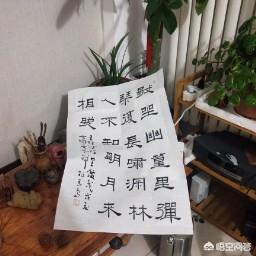 獨坐幽篁里彈
琴復長嘯深林
人不知明月來
相照
悟空问答